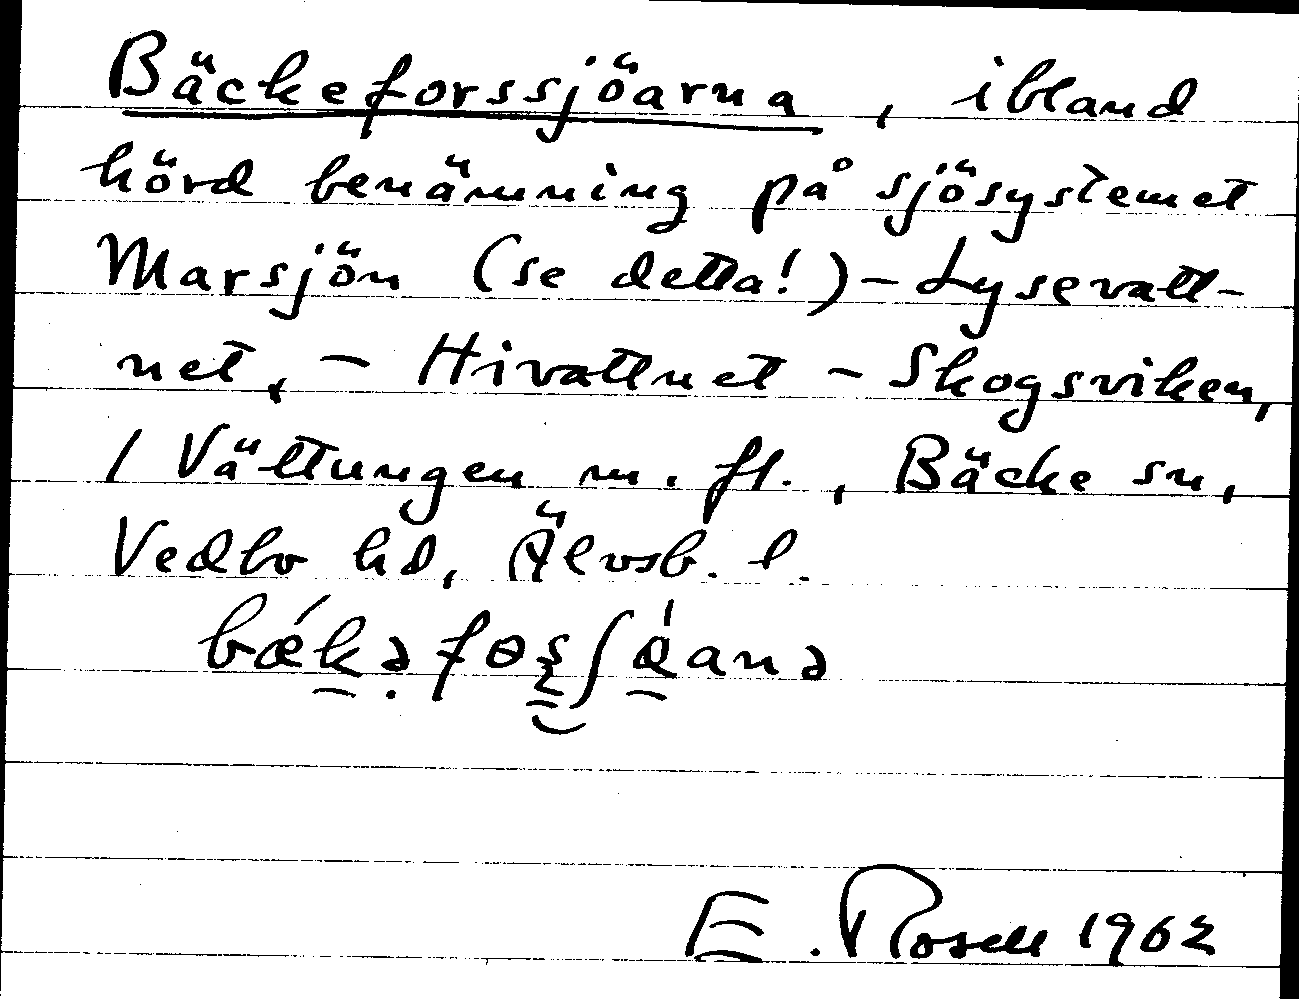 Bäckeforssjöarna, ibland
hörd benämning på sjösystemet
Marsjön (se detta!) – Lysevatt-
net, – Hivattnet – Skogsviken,
/ Vättungen m. fl., Bäcke sn,
Vedbo hd, Älvsb. l.
E. Rosell 1962